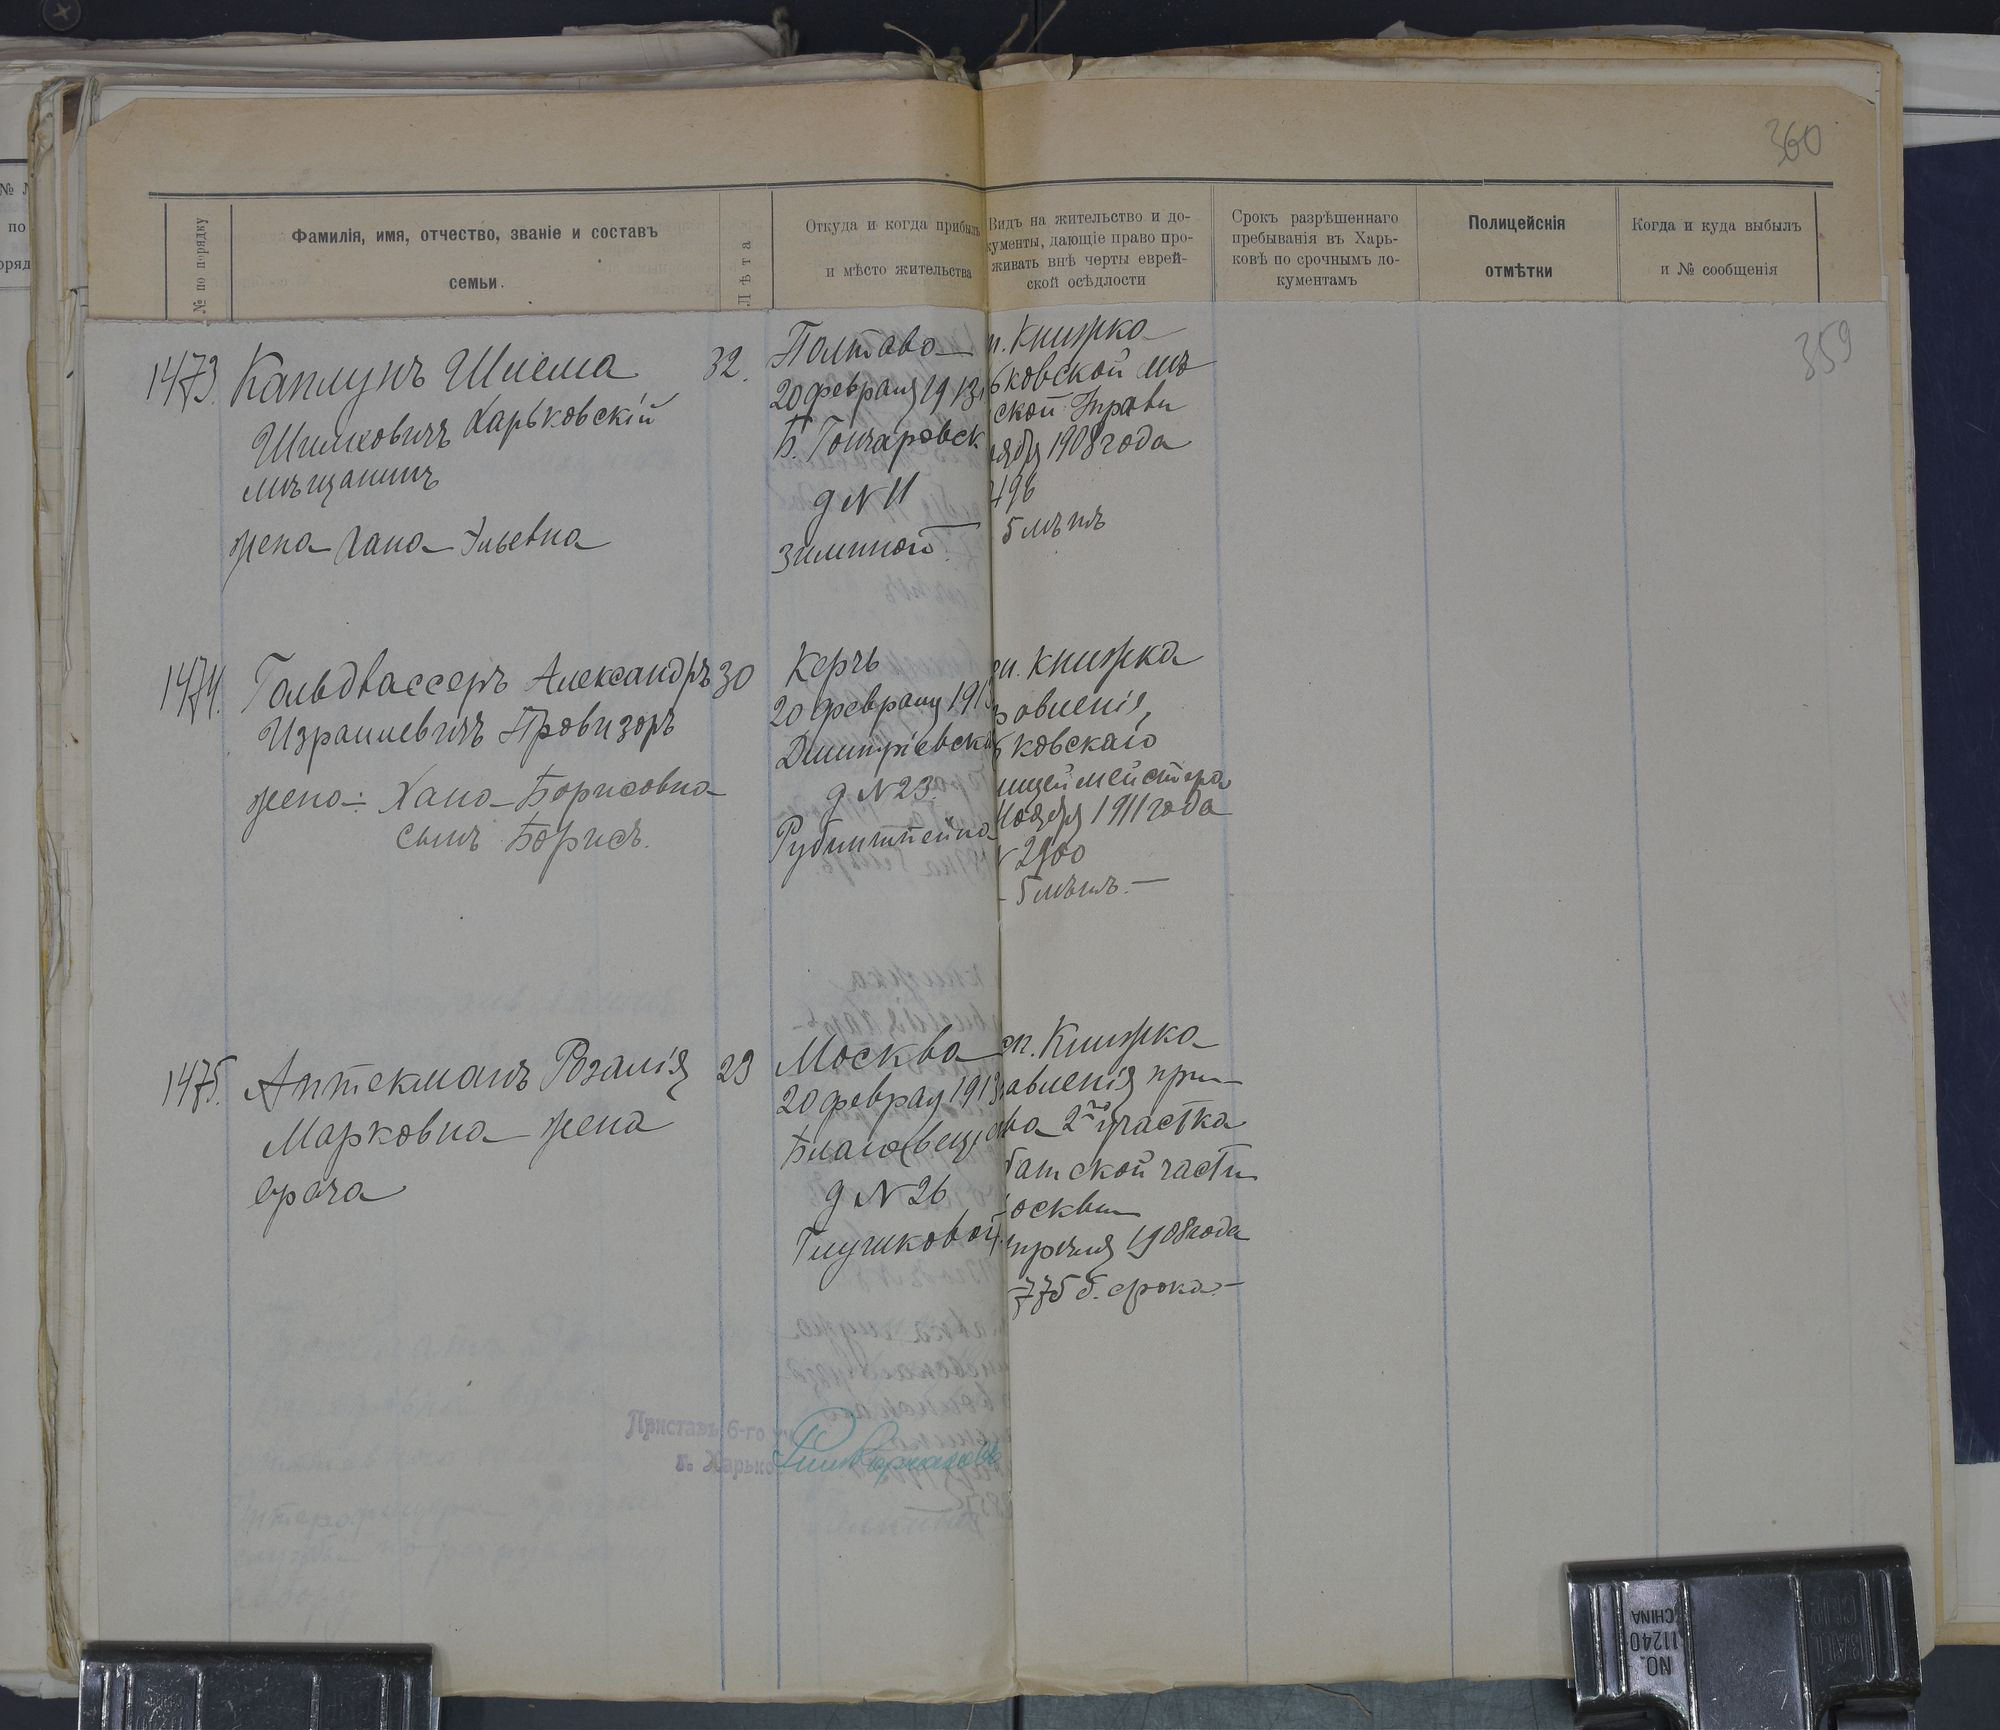 360
№ по порядку
Фамилія, имя, отчество, званіе и составъ
семьи.
Лѣта
Откуда и когда прибылъ
и мѣсто жительства
Видъ на жительство и до-
кументы, дающіе право про-
живать внѣ черты еврей-
ской осѣдлости
Срокъ разрѣшеннаго
пребыванія въ Харь-
ковѣ по срочнымъ до-
кументамъ
Полицейскія
отмѣтки
Когда и куда выбылъ
и № сообщенія
359
1473. Каплунъ Шлема
Шлиховичъ Харьковскій
мѣщанинъ
жена Хана Эльевна
32.
Полтава
20 февраля 1913
Б. Гончаровск
д N 11
Зиминой
п. Книжка
ьковской мѣ
ской Управы
ября 1908 года
496
5 лѣтъ
1474. Гольдвассеръ Александръ
Израилевичъ Провизоръ
жена: Хана Борисовна
сынъ Борисъ.
30
Керчь
20 февраля 191
Дмитріевск
д N 23
Рубинштейна
п. книжка
равленія
ковскаго
ицеймейстера
Ноября 1911 года
N 2900
- 5 лѣтъ. -
1475. Аптекманъ Розалія
Марковна жена
врача
29
Москва
20 феврал 1913
Благовещ
д N 26
Глушковой
сп. Книжка
авленія при-
ва 2го участка
батской части
осквы
преля 1908 года
775 б. срока. -
Приставъ 6-го уч
г. Харько
NO.
11240
CHINA